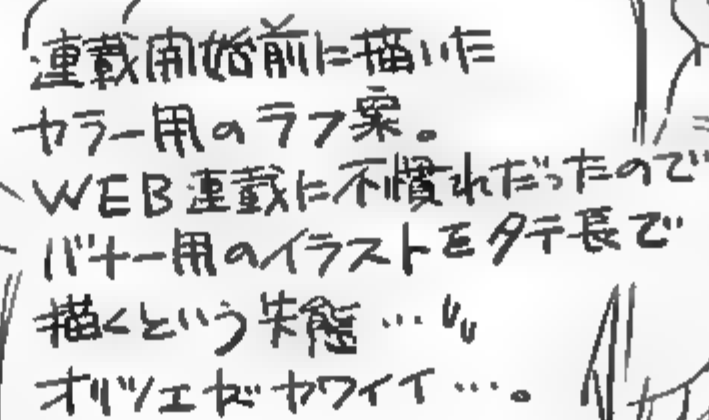 連載開始前に描いた
カラー用のラフ案。
WEB連載に不慣れだったので
バナー用のイラストをタテ長で
描くという失態…
オリヅエがカワイイ…。